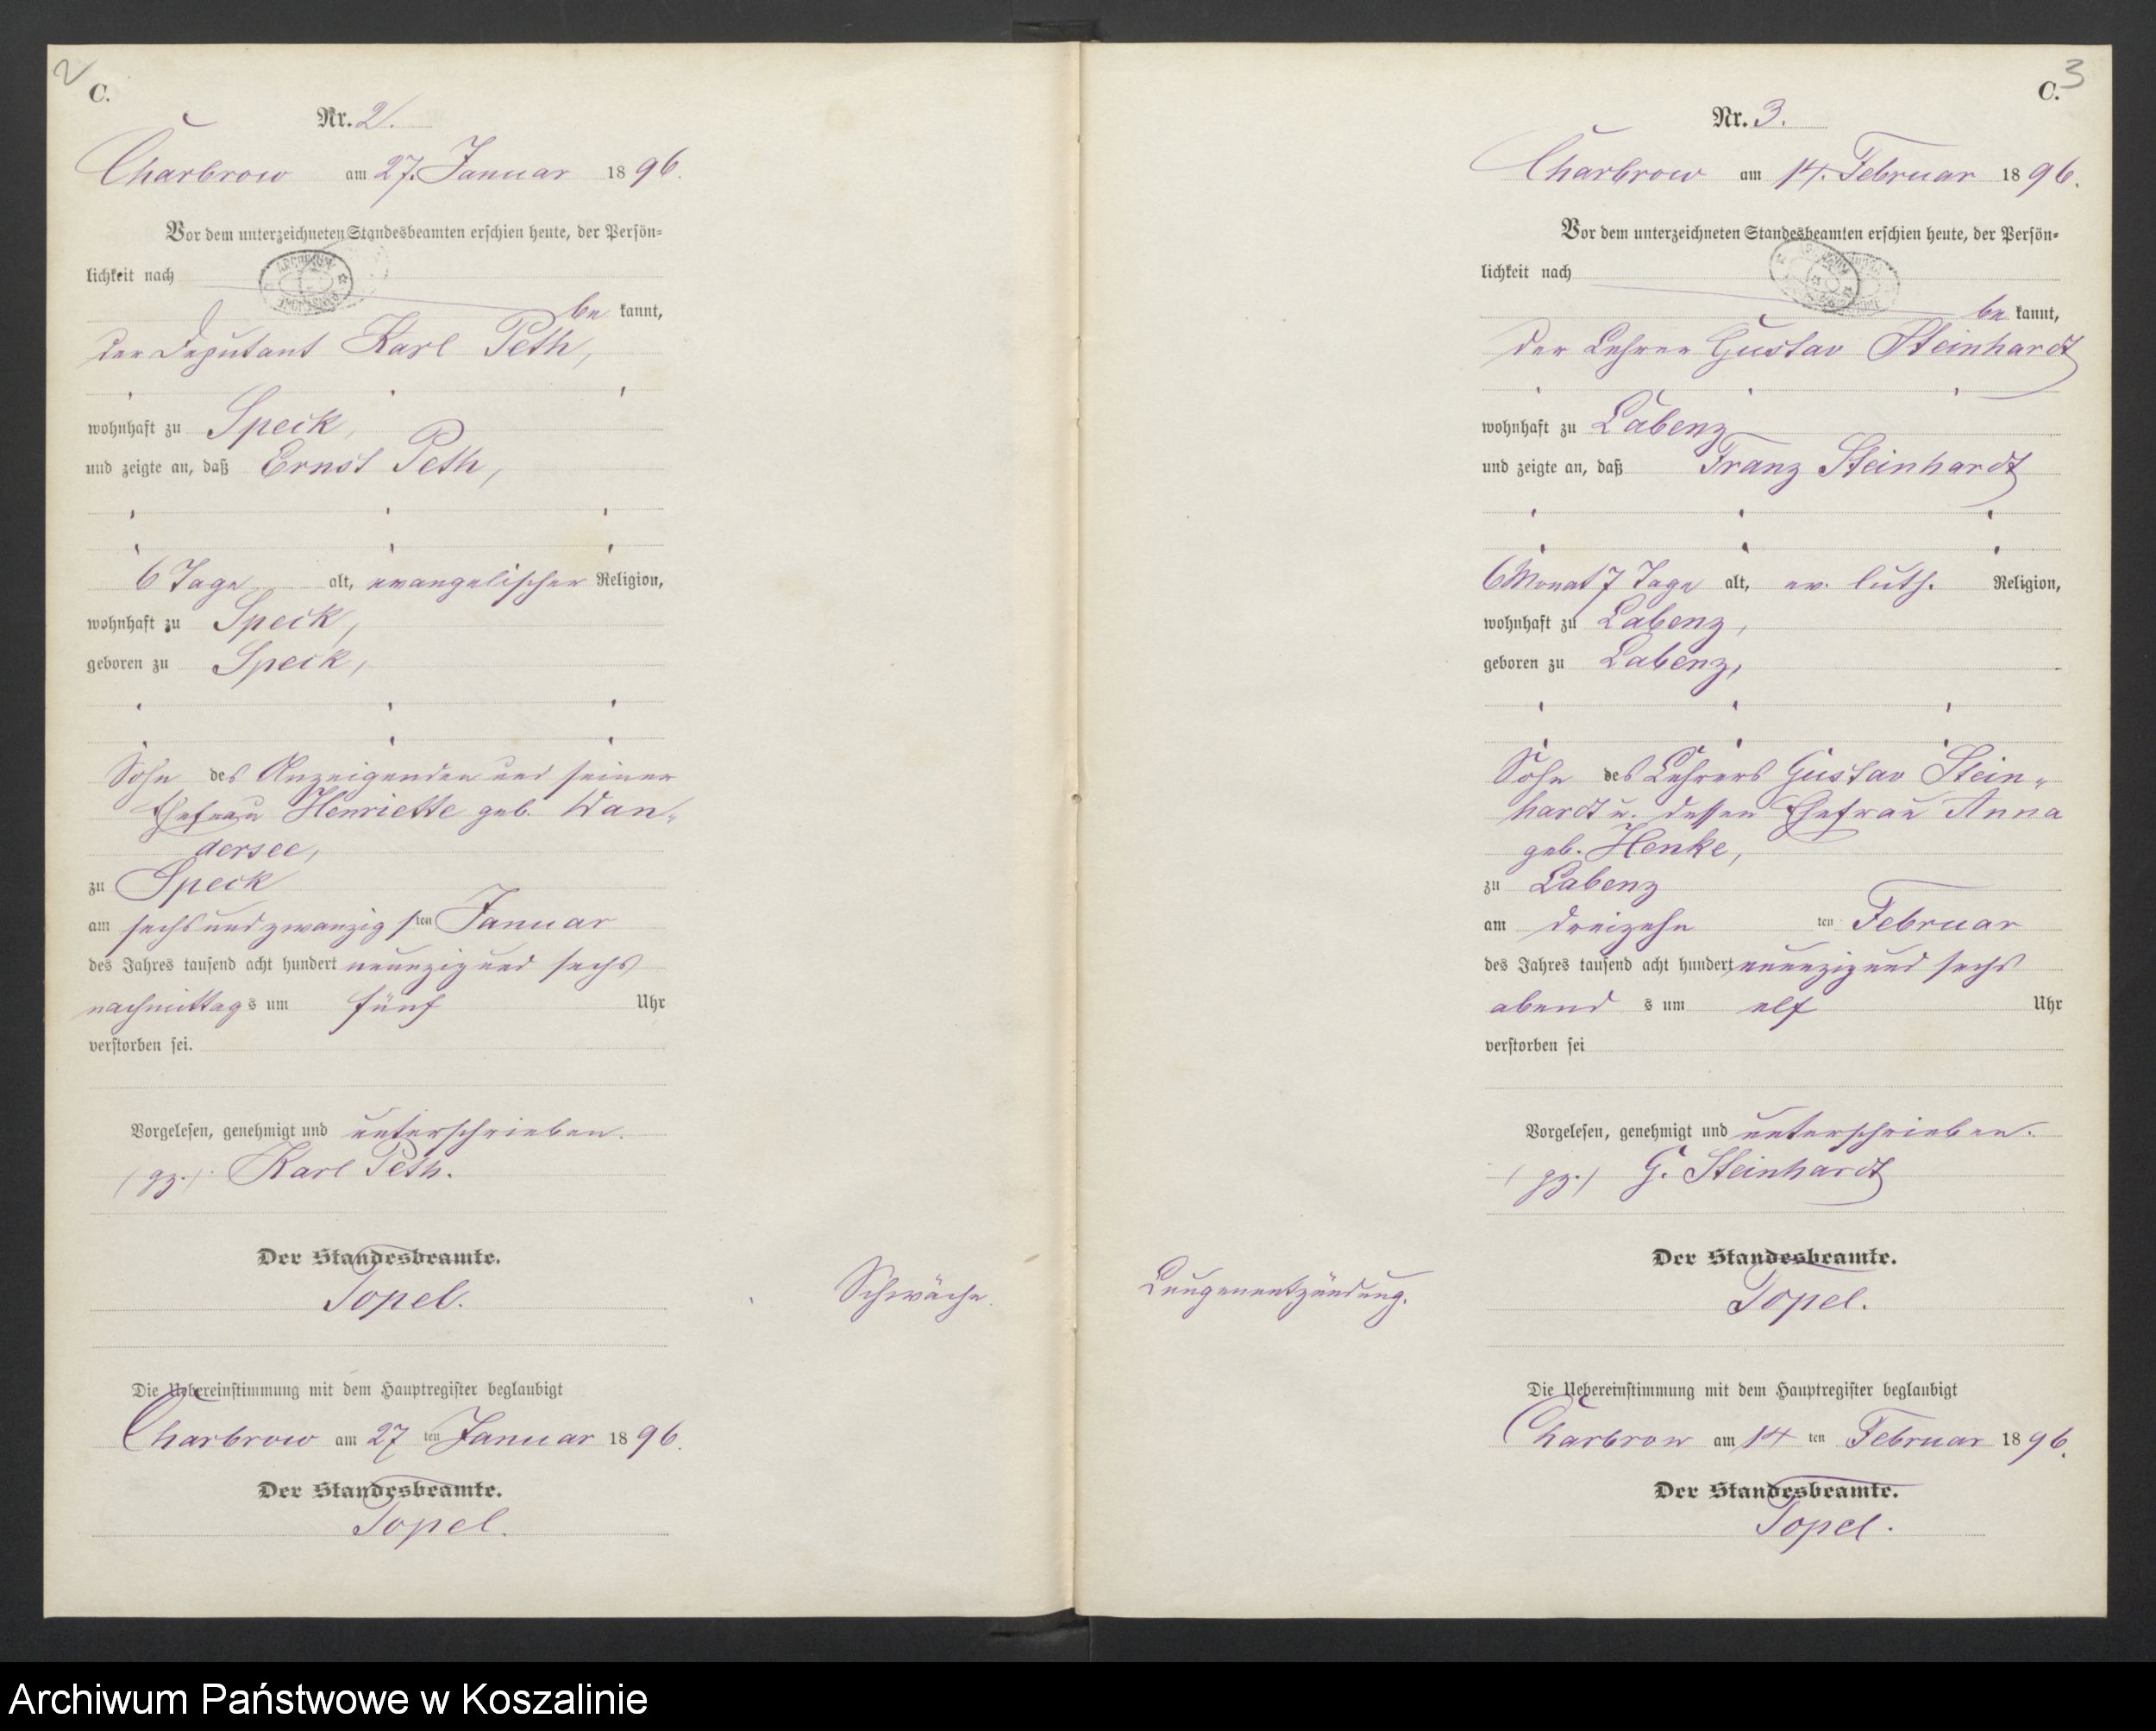 2
C.
Nr. 2.
Charbrow am 27. Januar 1896.
Vor dem unterzeichneten Standesbeamten erschien heute, der Persön-
lichkeit nach
be kannt,
der Deputant Karl Peth,
wohnhaft zu Speck,
und zeigte an, daß Ernst Peth,
6 Tage alt, evangelischer Religion,
wohnhaft zu Speck,
geboren zu Speck,
Sohn des Anzeigenden und seiner
Ehefrau Henriette geb. Wan-
dersee,
zu Speck
am sechsundzwanzigsten Januar
des Jahres tausend acht hundert neunzig und sechs
nachmittags um fünf Uhr
verstorben sei.
Vorgelesen, genehmigt und unterschrieben.
(gz.) Karl Peth.
Der Standesbeamte.
Topel.
Schwäche.
Die Uebereinstimmung mit dem Hauptregister beglaubigt
Charbrow am 27ten Januar 1896.
Der Standesbeamte.
Topel.
3
C.
Nr. 3.
Charbrow am 14. Februar 1896.
Vor dem unterzeichneten Standesbeamten erschien heute, der Persön-
lichkeit nach
be kannt,
der Lehrer Gustav Steinhardt
wohnhaft zu Labenz
und zeigte an, daß Franz Steinhardt
6 Monat 7 Tage alt, ev. luth. Religion,
wohnhaft zu Labenz,
geboren zu Labenz,
Sohn des Lehrers Gustav Stein-
hardt u. dessen Ehefrau Anna
geb. Henke,
zu Labenz
am dreizehn ten Februar
des Jahres tausend acht hundert neunzig und sechs
abend s um elf Uhr
verstorben sei
Vorgelesen, genehmigt und unterschrieben.
(gz.) G. Steinhardt
Der Standesbeamte.
Topel.
Lungenentzündung.
Die Uebereinstimmung mit dem Hauptregister beglaubigt
Charbrow am 14 ten Februar 1896.
Der Standesbeamte.
Topel.
Archiwum Państwowe w Koszalinie